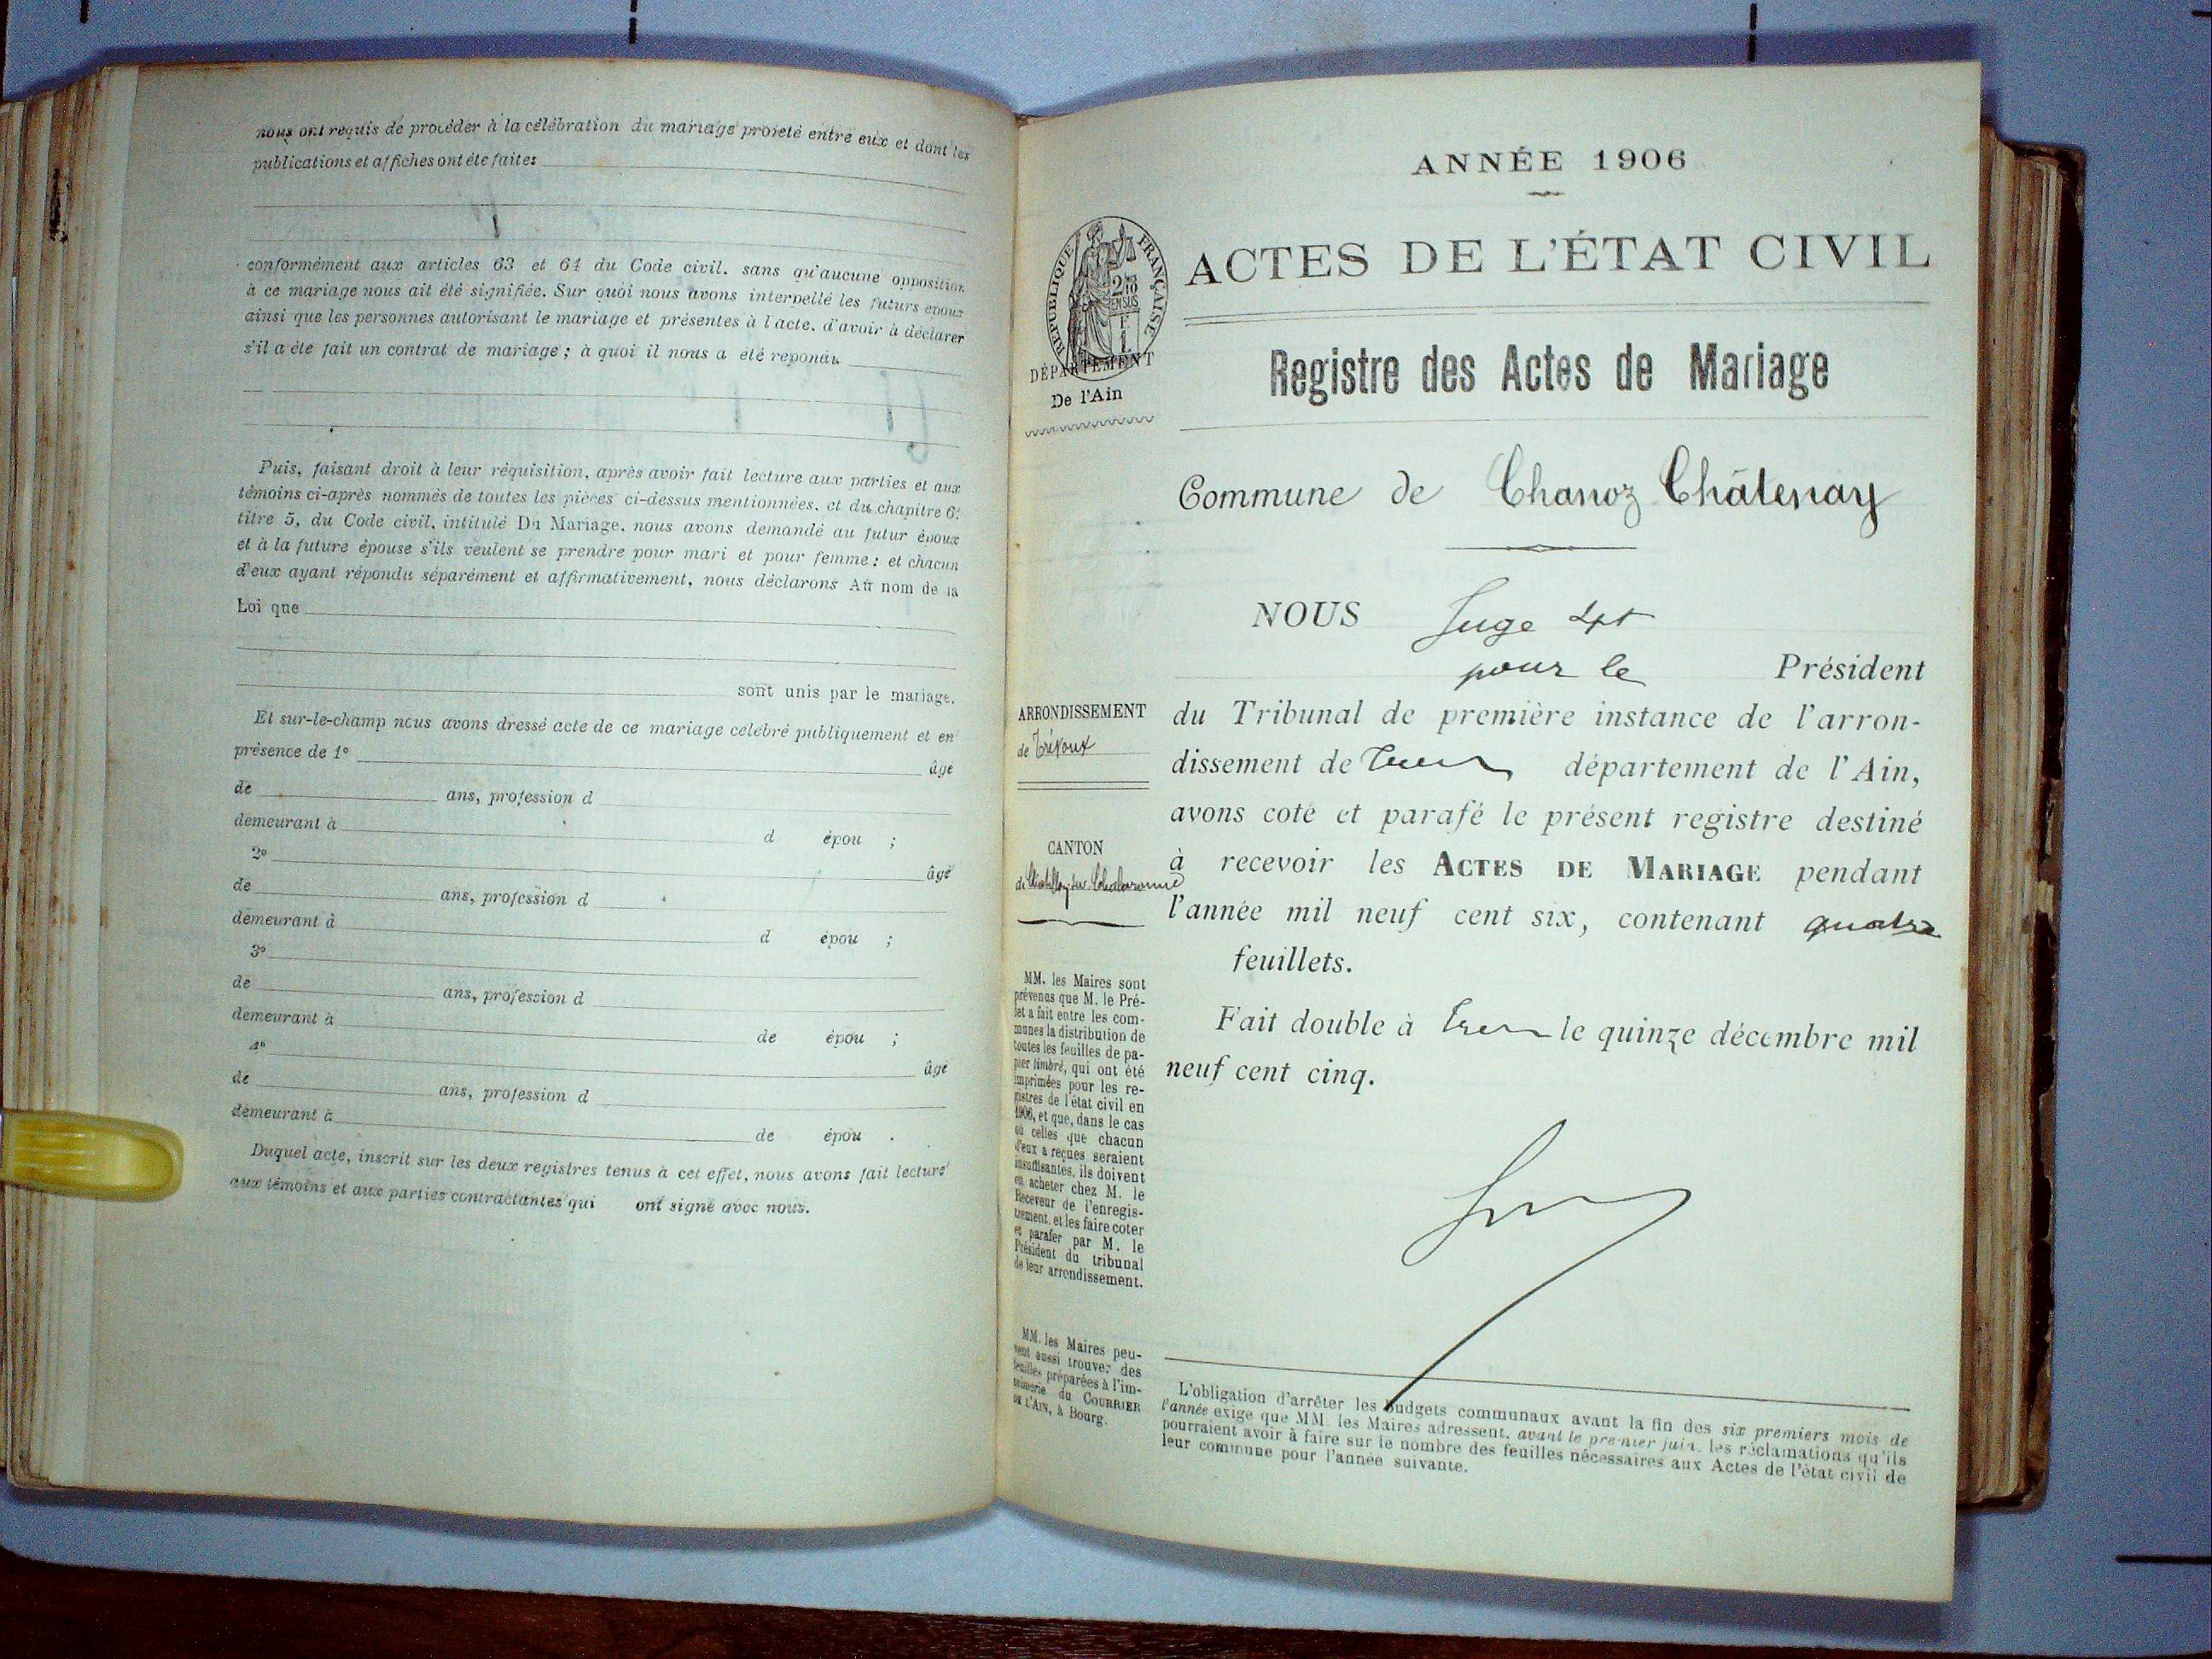 nous ont requis de procéder à la célébration du mariage projeté entre eux et dont les
publications et affiches ont été faites
conformément aux articles 63 et 64 du Code civil, sans qu'aucune opposition
à ce mariage nous ait été signifiée. Sur quoi nous avons interpellé les futurs époux
ainsi que les personnes autorisant le mariage et présentes à l'acte, d'avoir à déclarer
s'il a été fait un contrat de mariage ; à quoi il nous a été répondu
Puis, faisant droit à leur réquisition, après avoir fait lecture aux parties et aux
témoins ci-après nommés de toutes les pièces ci-dessus mentionnées, et du chapitre 6,
titre 5, du Code civil, intitulé Du Mariage, nous avons demandé au futur époux
et à la future épouse s'ils veulent se prendre pour mari et pour femme ; et chacun
d'eux ayant répondu séparément et affirmativement, nous déclarons Au nom de la
Loi que
sont unis par le mariage.
Et sur-le-champ nous avons dressé acte de ce mariage célébré publiquement et en
présence de 1° âgé
de ans, profession d
demeurant à d épou ;
2° âgé
de ans, profession d
demeurant à d épou ;
3°
de ans, profession d
demeurant à de épou ;
4° âgé
de ans, profession d
demeurant à de épou .
Duquel acte, inscrit sur les deux registres tenus à cet effet, nous avons fait lecture
aux témoins et aux parties contractantes qui ont signé avec nous.
ANNÉE 1906
RÉPUBLIQUE FRANÇAISE
ACTES DE L'ÉTAT CIVIL
DÉPARTEMENT
De l'Ain
Registre des Actes de Mariage
Commune de Chanoz Châtenay
NOUS Juge Spt
pour le Président
ARRONDISSEMENT
de Trévoux
du Tribunal de première instance de l'arron-
dissement de département de l'Ain,
avons coté et parafé le présent registre destiné
CANTON
de Chatillon sur Chalaronne
à recevoir les ACTES DE MARIAGE pendant
l'année mil neuf cent six, contenant quatre
feuillets.
Fait double à le quinze décembre mil
neuf cent cinq.
MM. les Maires sont
prévenus que M. le Pré-
fet a fait entre les com-
munes la distribution de
toutes les feuilles de pa-
pier timbré, qui ont été
imprimées pour les re-
gistres de l'état civil en
1906, et que, dans le cas
où celles que chacun
d'eux a reçues seraient
insuffisantes, ils doivent
en acheter chez M. le
Receveur de l'enregis-
trement, et les faire coter
et parafer par M. le
Président du tribunal
de leur arrondissement.
MM. les Maires peu-
vent aussi trouver des
feuilles préparées à l'im-
primerie du COURRIER
DE L'AIN, à Bourg.
L'obligation d'arrêter les budgets communaux avant la fin des six premiers mois de
l'année exige que MM. les Maires adressent, avant le premier juin, les réclamations qu'ils
pourraient avoir à faire sur le nombre des feuilles nécessaires aux Actes de l'état civil de
leur commune pour l'année suivante.